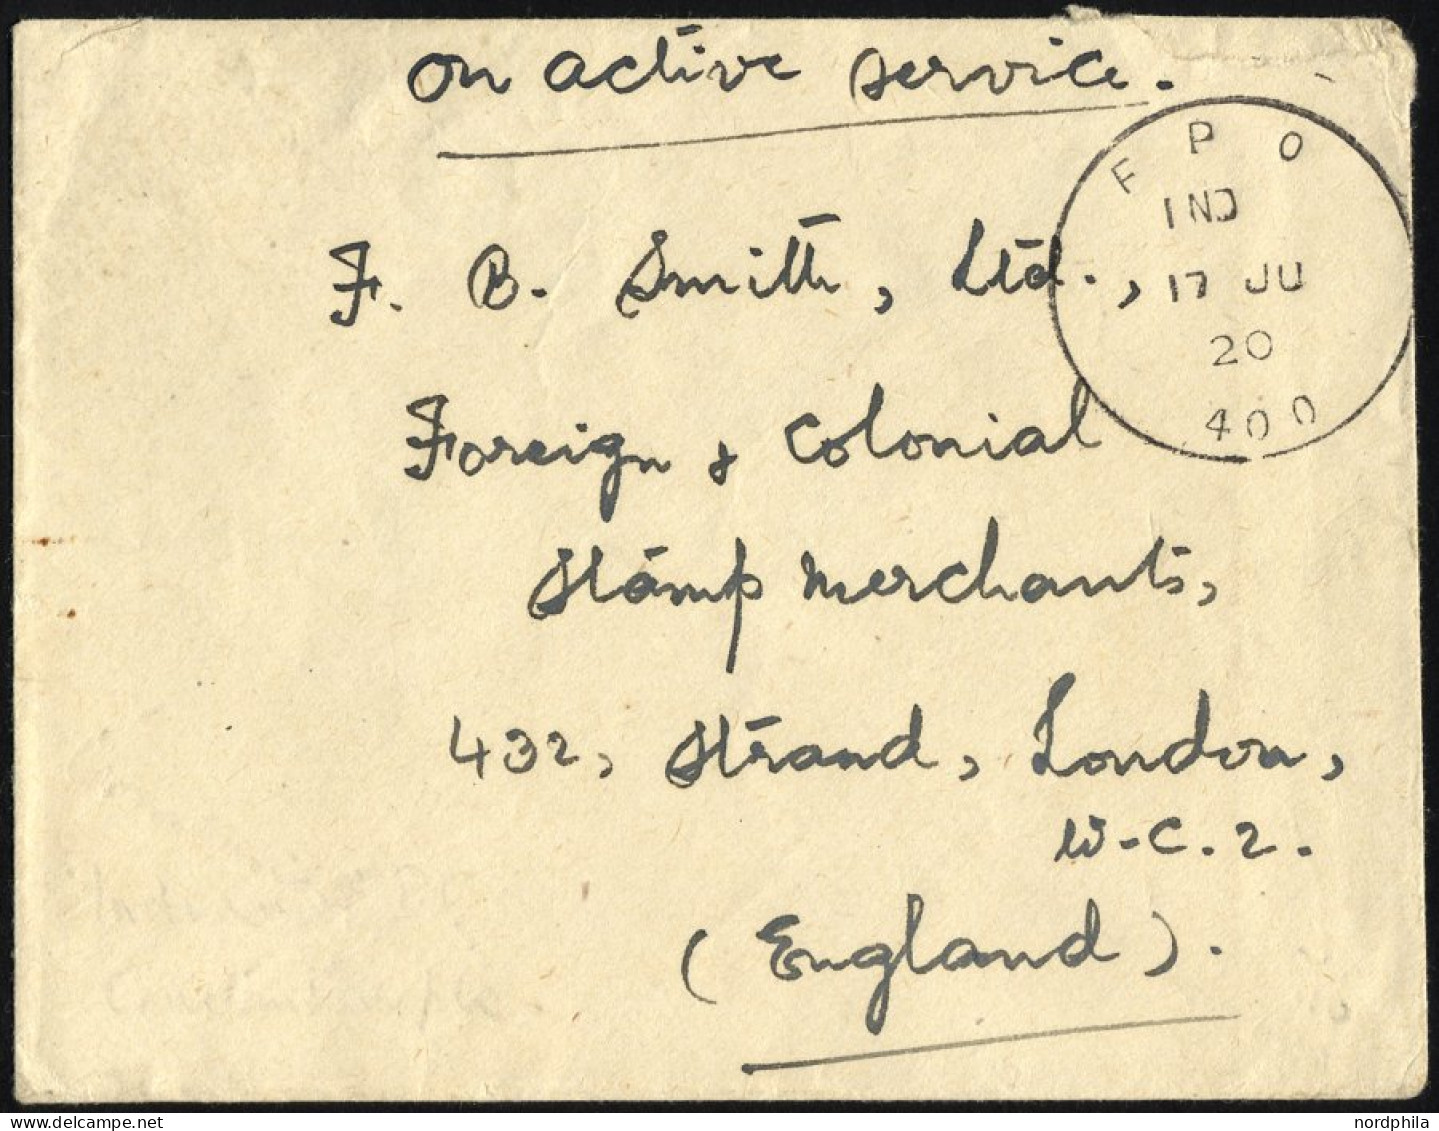 on active service.
F P O
IND
17 JU
20
400
F. B. Smith, Ltd.,
Foreign & Colonial
Stamp Merchants,
432, Strand, London,
W.C.2.
(England).
nordphila